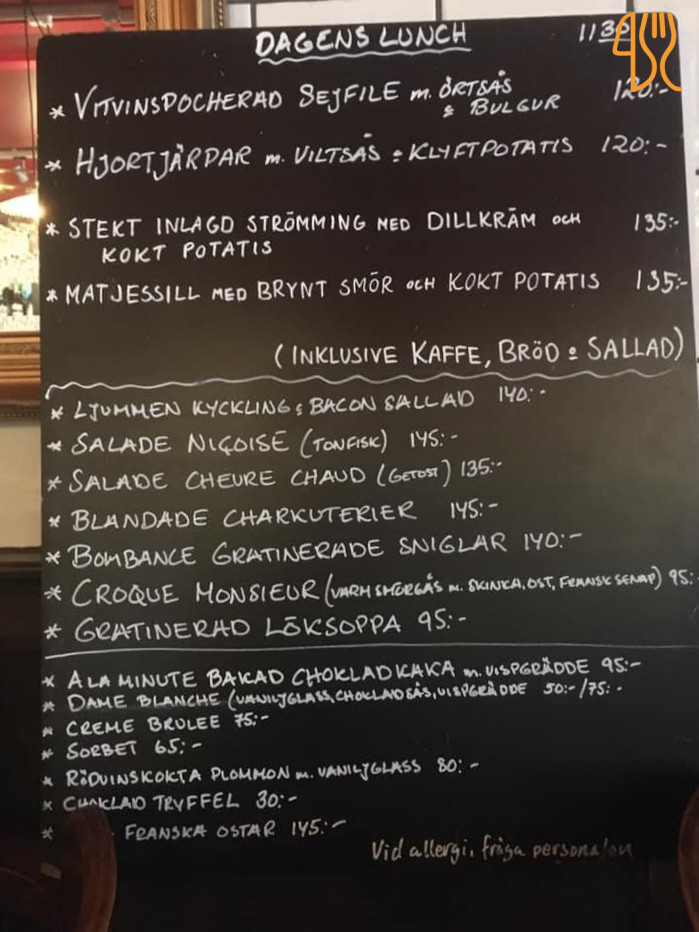 DAGENS LUNCH 1130
* VITVINSPOCHERAD SEJFILE m. ÖRTSÅS 120:-
& BULGUR
* HJORTJÄRDAR m. VILTSÅS & KLYFTPOTATIS 120:-
* STEKT INLAGD STRÖMMING MED DILLKRÄM OCH 135:-
KOKT POTATIS
* MATJESSILL MED BRYNT SMÖR OCH KOKT POTATIS 135:-
(INKLUSIVE KAFFE, BRÖD & SALLAD)
* LJUMMEN KYCKLING & BACON SALLAD 140:-
* SALADE NIÇOISE (TONFISK) 145:-
* SALADE CHEURE CHAUD (GETOST) 135:-
* BLANDADE CHARKUTERIER 145:-
* BOMBANCE GRATINERADE SNIGLAR 140:-
* CROQUE MONSIEUR (VARM SMÖRGÅS m. SKINKA, OST, FRANSK SENAP) 95:-
* GRATINERAD LÖKSOPPA 95:-
* A LA MINUTE BAKAD CHOKLADKAKA m. VISPGRÄDDE 95:-
* DAME BLANCHE (VANILJGLASS, CHOKLADSÅS, VISPGRÄDDE 50:-/75:-
* CREME BRULEE 75:-
* SORBET 65:-
* RÖDVINSKOKTA PLOMMON m. VANILJGLASS 80:-
* CHOKLAD TRYFFEL 30:-
* FRANSKA OSTAR 145:-
Vid allergi, fråga personalen